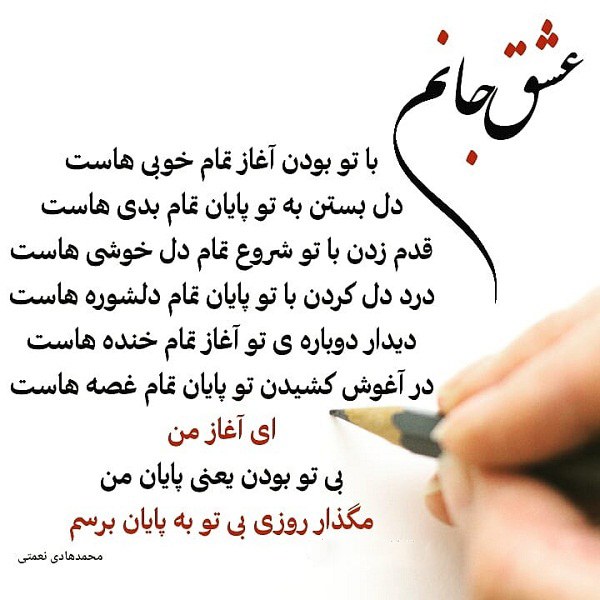 عشق جانم
با تو بودن آغاز تمام خوبی هاست
دل بستن به تو پایان تمام بدی هاست
قدم زدن با تو شروع تمام دل خوشی هاست
درد دل کردن با تو پایان تمام دلشوره هاست
دیدار دوباره ی تو آغاز تمام خنده هاست
در آغوش کشیدن تو پایان تمام غصه هاست
ای آغاز من
بی تو بودن یعنی پایان من
مگذار روزی بی تو به پایان برسم
محمدهادی نعمتی